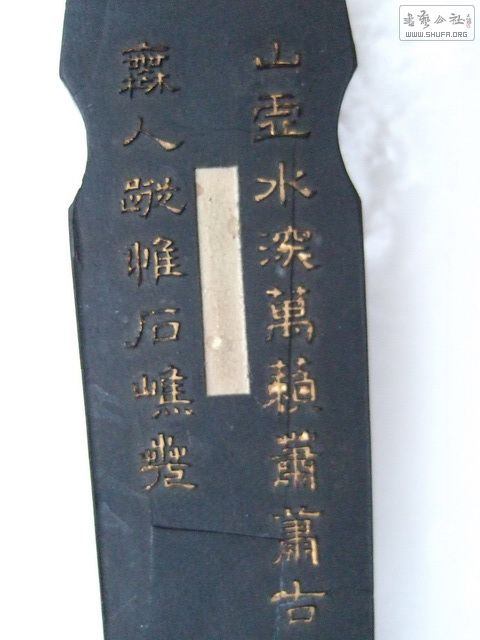 山虛水深萬籟蕭蕭古
無人蹤惟石嶕嶢
書藝公社
WWW.SHUFA.ORG